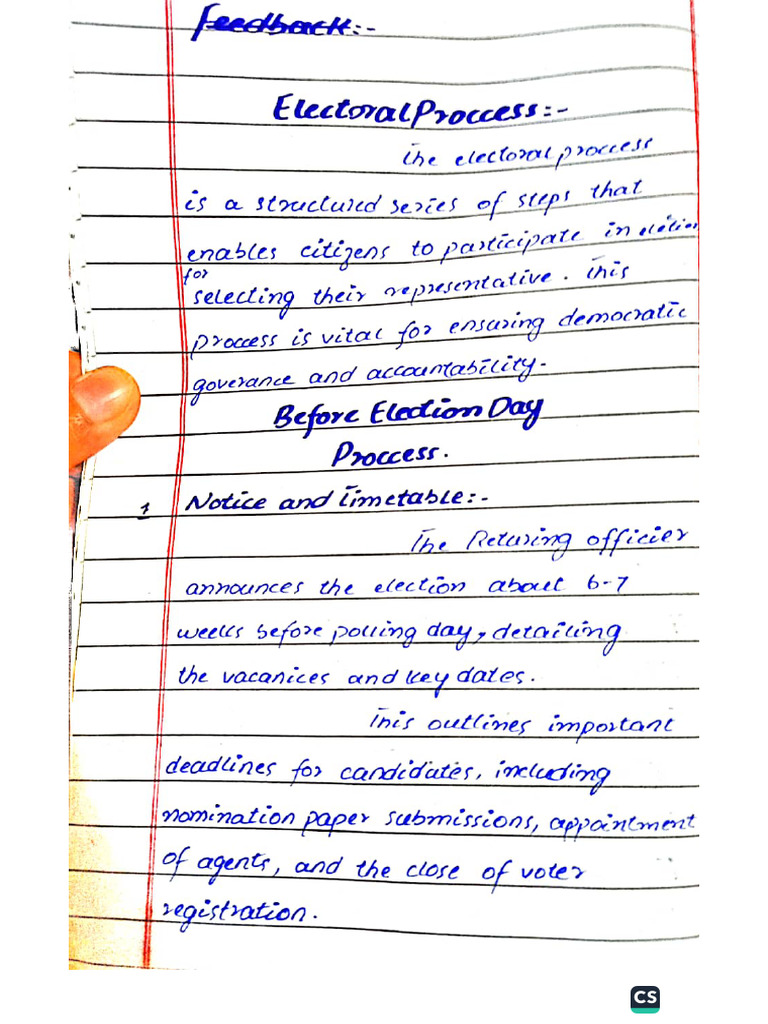 Feedback:-
Electoral Proccess:-
The electoral proccess
is a structured series of steps that
enables citizens to participate in election
for
selecting their representative. This
process is vital for ensuring democratic
goverance and accountability.
Before Election Day
Proccess.
1 Notice and Timetable:-
The Returing officier
announces the election about 6-7
weeks before polling day, detailing
the vacanices and key dates.
This outlines important
deadlines for candidates, including
nomination paper submissions, appointment
of agents, and the close of voter
registration.
CS